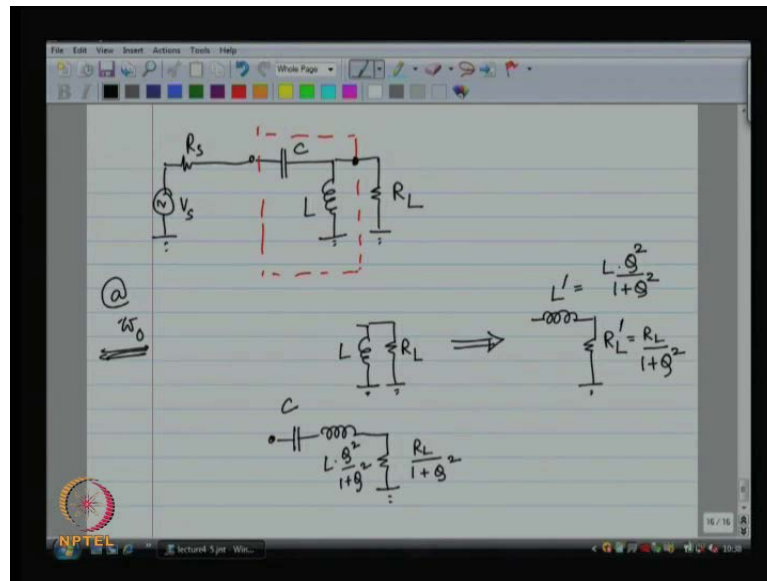 File Edit View Insert Actions Tools Help
Whole Page
B I
Rs
C
Vs
L
RL
@
w₀
L RL ⟹ L' = L·Q²/1+Q²
RL' = RL/1+Q²
C
L·Q²/1+Q² RL/1+Q²
16/16
NPTEL
lecture4 5.jnt - Win...
10:38